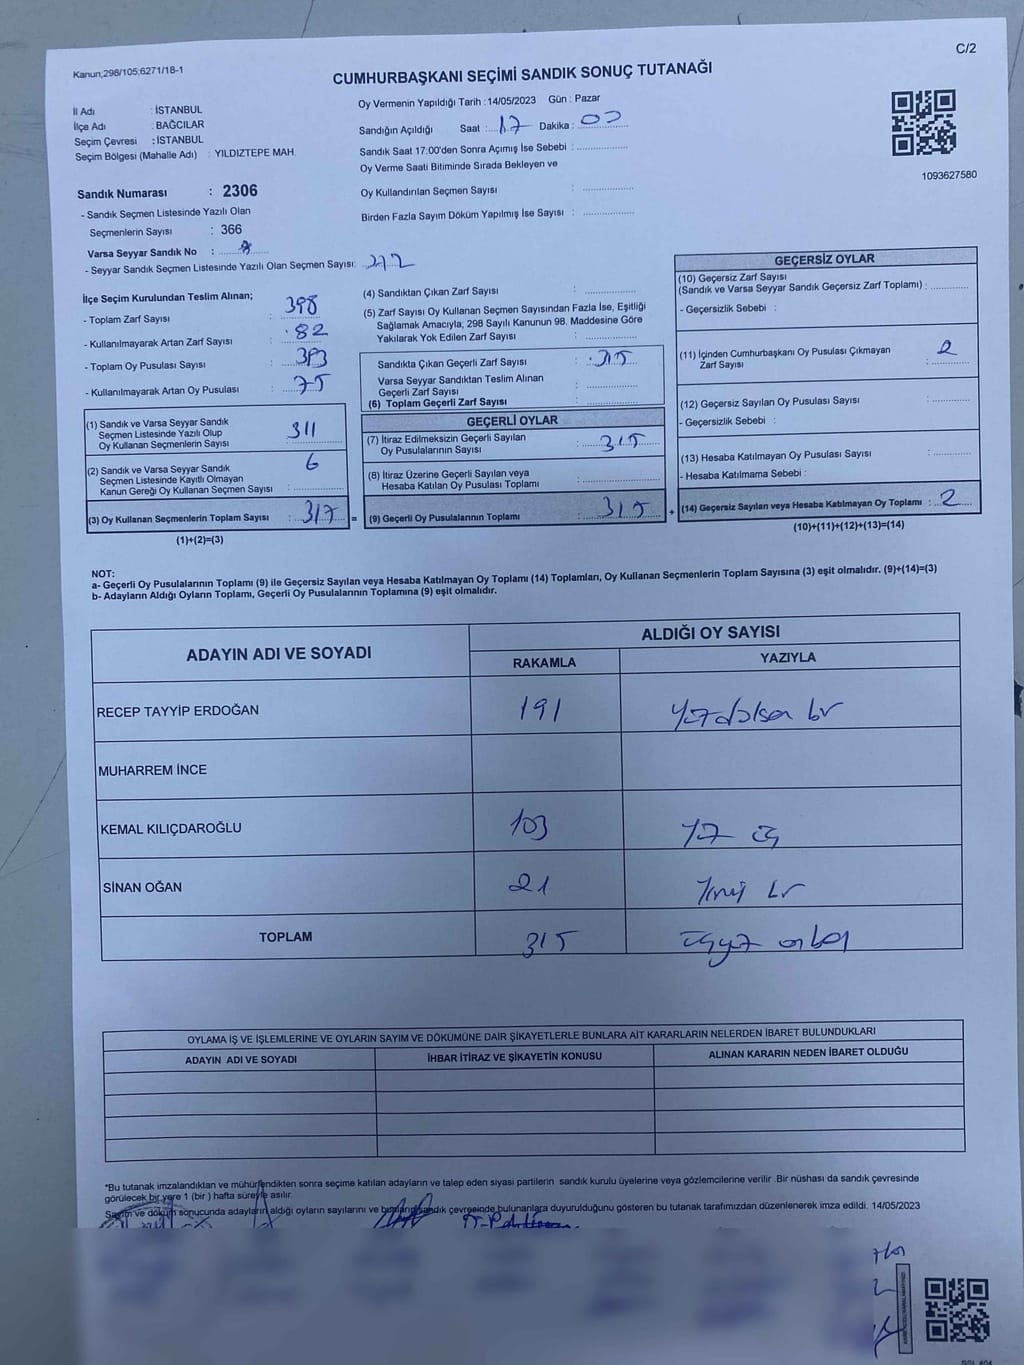 Kanun,298/105;6271/18-1
C/2
CUMHURBAŞKANI SEÇİMİ SANDIK SONUÇ TUTANAĞI
İl Adı : İSTANBUL
İlçe Adı : BAĞCILAR
Seçim Çevresi : İSTANBUL
Seçim Bölgesi (Mahalle Adı) : YILDIZTEPE MAH.
Sandık Numarası : 2306
- Sandık Seçmen Listesinde Yazılı Olan
Seçmenlerin Sayısı : 366
Varsa Seyyar Sandık No :
- Seyyar Sandık Seçmen Listesinde Yazılı Olan Seçmen Sayısı:
Oy Vermenin Yapıldığı Tarih : 14/05/2023 Gün : Pazar
Sandığın Açıldığı Saat : 17 Dakika : 00
Sandık Saat 17:00'den Sonra Açımış İse Sebebi :
Oy Verme Saati Bitiminde Sırada Bekleyen ve
Oy Kullandırılan Seçmen Sayısı :
Birden Fazla Sayım Döküm Yapılmış İse Sayısı :
1093627580
İlçe Seçim Kurulundan Teslim Alınan;
- Toplam Zarf Sayısı : 398
- Kullanılmayarak Artan Zarf Sayısı : 82
- Toplam Oy Pusulası Sayısı : 393
- Kullanılmayarak Artan Oy Pusulası : 75
(1) Sandık ve Varsa Seyyar Sandık
Seçmen Listesinde Yazılı Olup
Oy Kullanan Seçmenlerin Sayısı : 311
(2) Sandık ve Varsa Seyyar Sandık
Seçmen Listesinde Kayıtlı Olmayan
Kanun Gereği Oy Kullanan Seçmen Sayısı : 6
(3) Oy Kullanan Seçmenlerin Toplam Sayısı : 317 =
(1)+(2)=(3)
(4) Sandıktan Çıkan Zarf Sayısı :
(5) Zarf Sayısı Oy Kullanan Seçmen Sayısından Fazla İse, Eşitliği
Sağlamak Amacıyla, 298 Sayılı Kanunun 98. Maddesine Göre
Yakılarak Yok Edilen Zarf Sayısı :
Sandıkta Çıkan Geçerli Zarf Sayısı : 315
Varsa Seyyar Sandıktan Teslim Alınan
Geçerli Zarf Sayısı :
(6) Toplam Geçerli Zarf Sayısı :
GEÇERLİ OYLAR
(7) İtiraz Edilmeksizin Geçerli Sayılan
Oy Pusulalarının Sayısı : 315
(8) İtiraz Üzerine Geçerli Sayılan veya
Hesaba Katılan Oy Pusulası Toplamı :
(9) Geçerli Oy Pusulalarının Toplamı : 315 +
GEÇERSİZ OYLAR
(10) Geçersiz Zarf Sayısı
(Sandık ve Varsa Seyyar Sandık Geçersiz Zarf Toplamı) :
- Geçersizlik Sebebi :
(11) İçinden Cumhurbaşkanı Oy Pusulası Çıkmayan
Zarf Sayısı : 2
(12) Geçersiz Sayılan Oy Pusulası Sayısı :
- Geçersizlik Sebebi :
(13) Hesaba Katılmayan Oy Pusulası Sayısı :
- Hesaba Katılmama Sebebi :
(14) Geçersiz Sayılan veya Hesaba Katılmayan Oy Toplamı : 2
(10)+(11)+(12)+(13)=(14)
NOT:
a- Geçerli Oy Pusulalarının Toplamı (9) ile Geçersiz Sayılan veya Hesaba Katılmayan Oy Toplamı (14) Toplamları, Oy Kullanan Seçmenlerin Toplam Sayısına (3) eşit olmalıdır. (9)+(14)=(3)
b- Adayların Aldığı Oyların Toplamı, Geçerli Oy Pusulalarının Toplamına (9) eşit olmalıdır.
ADAYIN ADI VE SOYADI
ALDIĞI OY SAYISI
RAKAMLA YAZIYLA
RECEP TAYYİP ERDOĞAN 191 Yüzdoksan bir
MUHARREM İNCE
KEMAL KILIÇDAROĞLU 103 Yüz üç
SİNAN OĞAN 21 Yirmi bir
TOPLAM 315 Üçyüz onbeş
OYLAMA İŞ VE İŞLEMLERİNE VE OYLARIN SAYIM VE DÖKÜMÜNE DAİR ŞİKAYETLERLE BUNLARA AİT KARARLARIN NELERDEN İBARET BULUNDUKLARI
ADAYIN ADI VE SOYADI İHBAR İTİRAZ VE ŞİKAYETİN KONUSU ALINAN KARARIN NEDEN İBARET OLDUĞU
*Bu tutanak imzalandıktan ve mühürlendikten sonra seçime katılan adayların ve talep eden siyasi partilerin sandık kurulu üyelerine veya gözlemcilerine verilir .Bir nüshası da sandık çevresinde
görülecek bir yere 1 (bir ) hafta süreyle asılır.
Sayım ve döküm sonucunda adayların aldığı oyların sayılarını ve bunların sandık çevresinde bulunanlara duyurulduğunu gösteren bu tutanak tarafımızdan düzenlenerek imza edildi. 14/05/2023